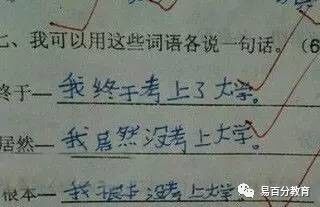 七、我可以用这些词语各说一句话。(6
终于—我终于考上了大学。
居然—我居然没考上大学。
根本—我根本没考上大学
易百分教育